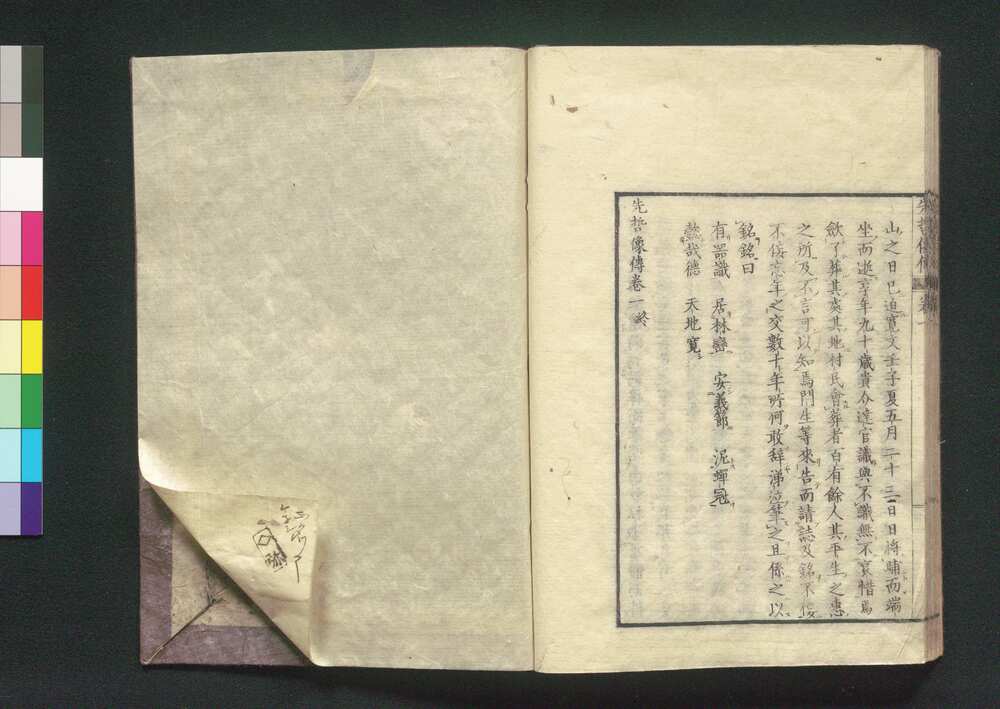 山之日已迫寛文壬子夏五月二十三日日將晡而端
坐而逝享年九十歳貴介達官識與不識無不哀惜焉
歛了葬其喪其地村民會葬者百有餘人其平生之惠
之所及不言可以知焉門生等來告而請誌及銘不佞
不佞忘年之交數十年所何敢辞涕泣筆之且係之以
銘銘曰
有器識 居林巒 安義節 泥蟬冠
懿哉德 天地寛
先哲像傳卷一終